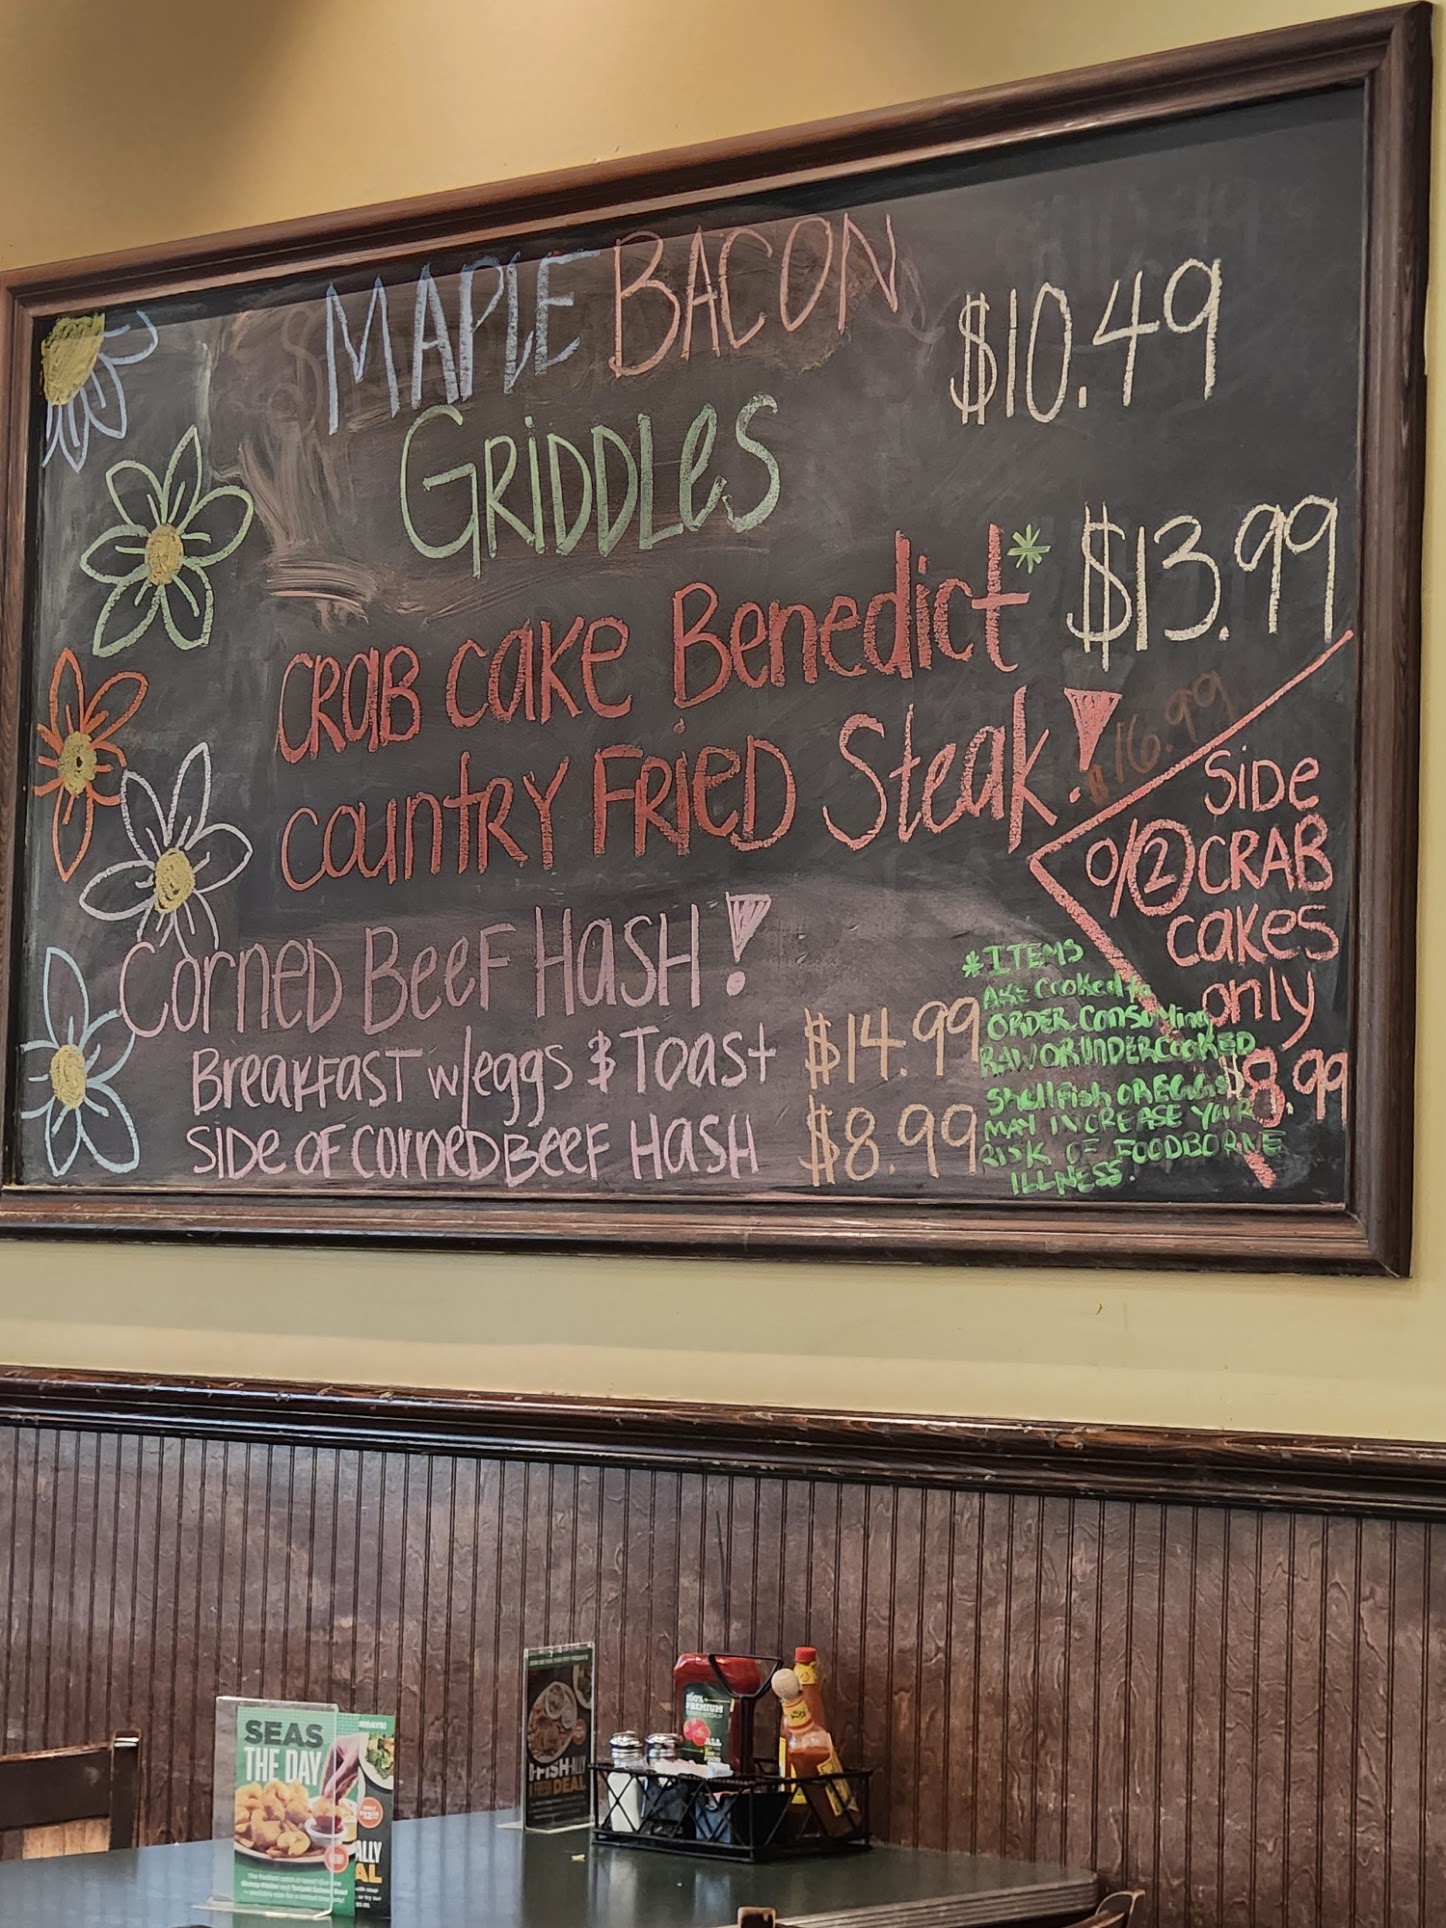 MAPLE BACON
GRIDDLes $10.49
CRAB CAKE Benedict* $13.99
COUNTRY FRIED Steak! $16.99
SIDE
O/2 CRAB
CAKES
only
$8.99
Corned Beef HASH!
BreakFAST w/eggs & Toast $14.99
SIDE OF CornedBeef HASH $8.99
*ITEMS
ARE COOKED to
ORDER. CONSUMING
RAW OR UNDERCOOKED
Shellfish OR EGGS
MAY INCREASE YOUR
RISK OF FOODBORNE
ILLNESS.
SEAS
THE DAY
ALLY
AL
JOIN US FOR FISH FRIDAYS!
DEAL
100%
PREMIUM